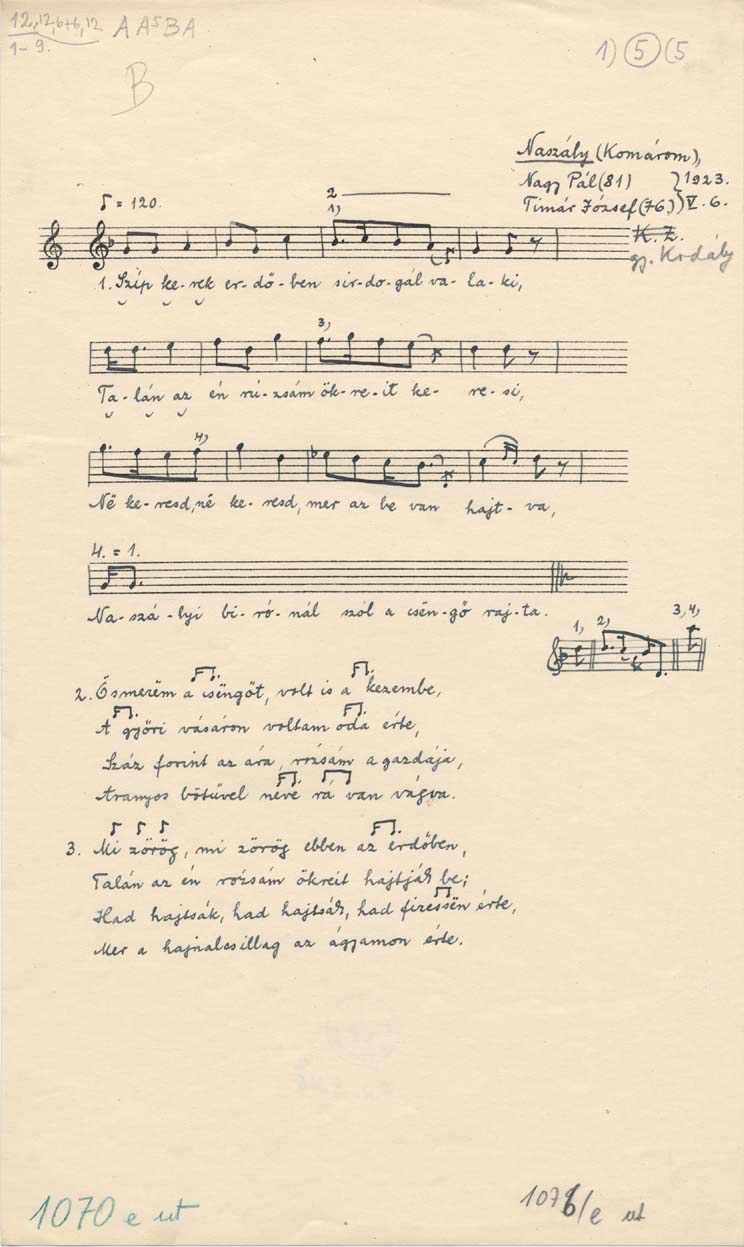 12, 12, 6+6, 12 A A⁵ B A
1-9.
1) 5 (5
B
Naszály (Komárom),
Nagy Pál (81) } 1923.
Timár József (76) } V. 6.
K. Z.
gy. Kodály
♪ = 120.
2
1)
1. Szíp ke-rek er-dő-ben sir-do-gál va-la-ki,
3)
Ta-lán az én rú-zsám ök-re-it ke-re-si,
4)
Në ke-resd, në ke-resd, mer az be van hajt-va,
4. = 1.
Na-szá-lyi bi-ró-nál szól a csën-gő raj-ta.
1) 2) 3, 4,
2. Ösmerëm a csëngőt, volt is a kezembe,
A győri vásáron voltam oda érte,
Száz forint az ára, rozsám a gazdája,
Aranyos bötűvel neve rá van vágva.
3. Mi zörög, mi zörög ebben az erdőben,
Talán az én rozsám ökreit hajtják be;
Had hajtsák, had hajtsák, had fizessën érte,
Mer a hajnalcsillag az ágyamon érte.
1070 e ut